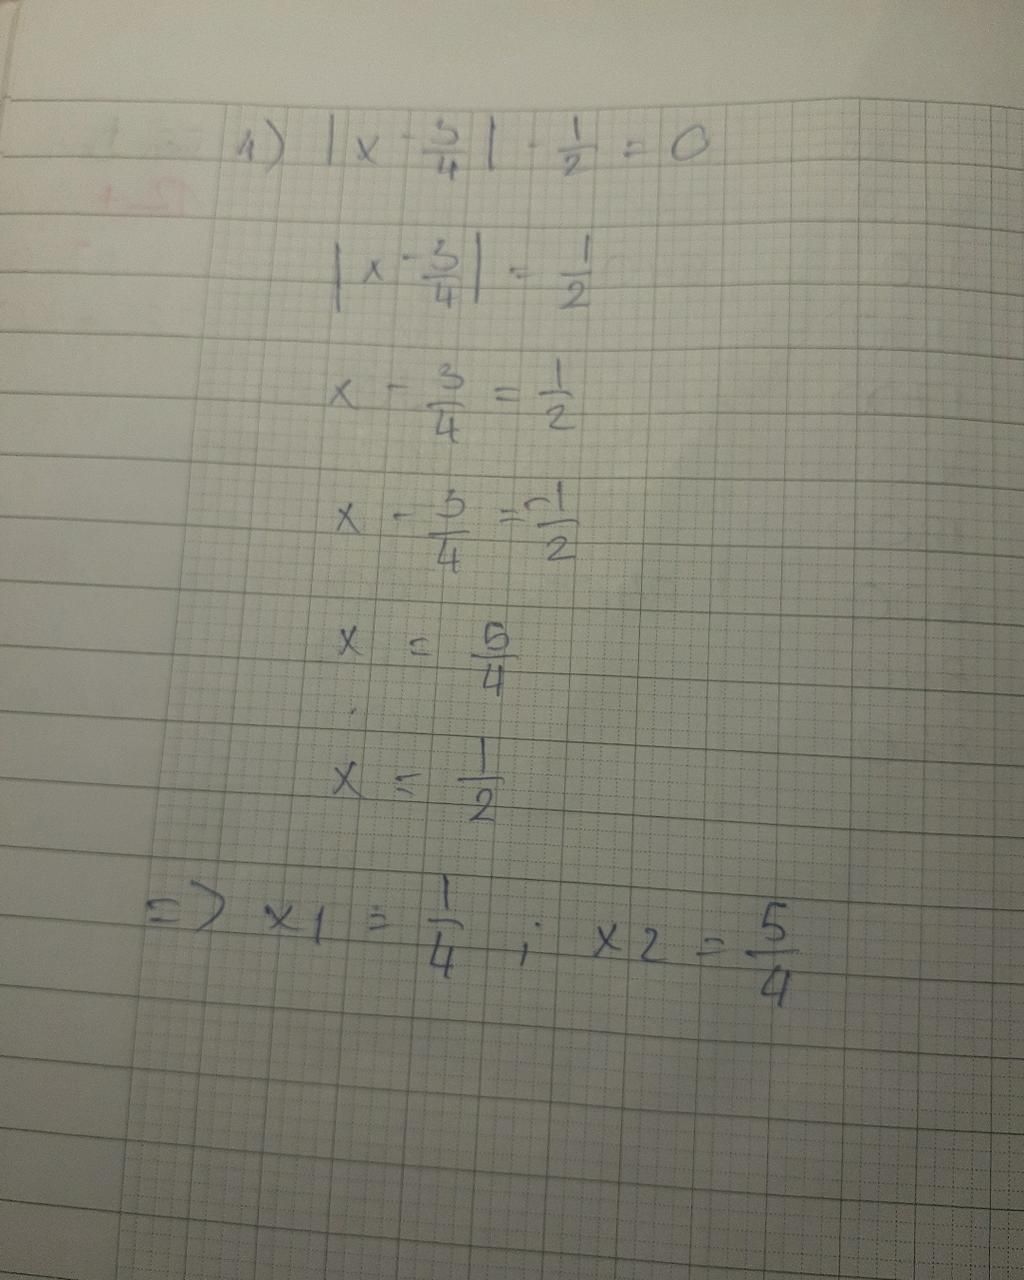 1) |x - 3/4| - 1/2 = 0
|x - 3/4| = 1/2
x - 3/4 = 1/2
x - 3/4 = -1/2
x = 5/4
x = 1/2
=> x1 = 1/4 ; x2 = 5/4